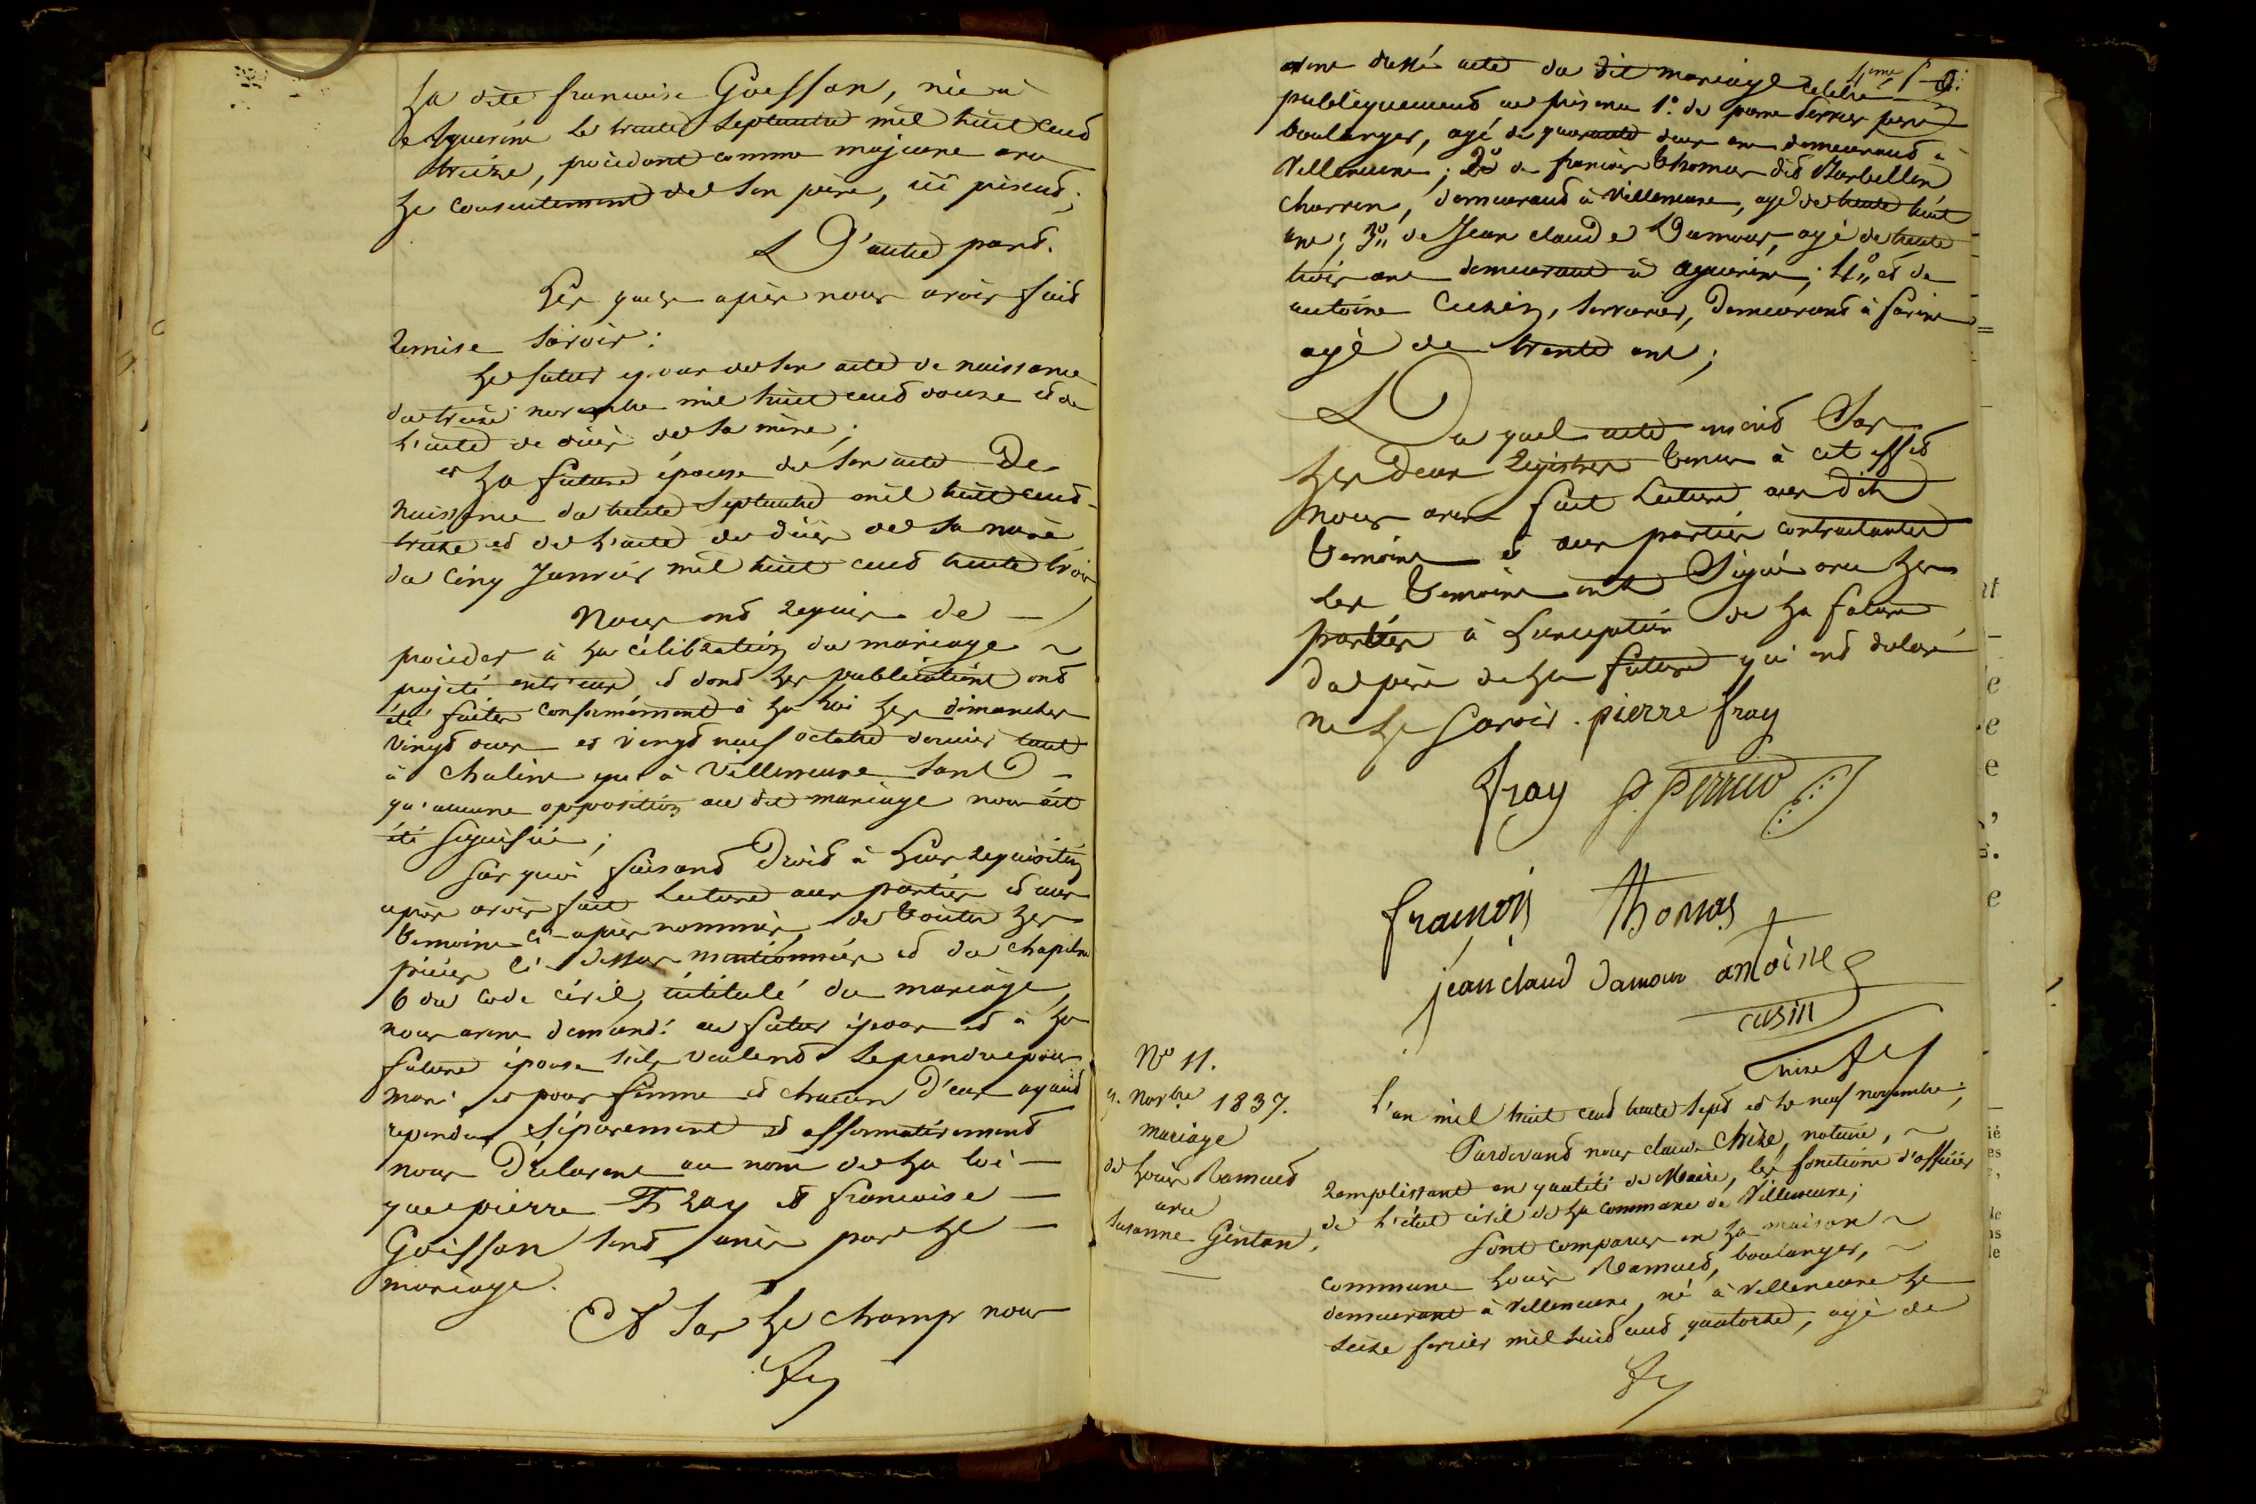 La dite francoise Goiffon, née à
Aguerin le trente Septembre mil huit cent
treize, procédant comme majeure avec
Le consentement de Son père, ici présent;
D'autre part.
Les quels après nous avoir fait
Remise Savoir:
Le futur époux de Son acte de naissance
du treize novembre mil huit cent douze et de
l'acte de décès de Sa mère;
et La future épouse de Son acte De
Naissance du trente Septembre mil huit cent
treize et de L'acte de décès de Sa mère
du Cinq Janvier mil huit cent trente trois
Nous ont Requis de
procéder à La célébration du mariage
projeté entr'eux et dont Les publications ont
été faites conformément à La Loi Les dimanches
Vingt deux et vingt neuf octobre dernier tant
à Chaline que à Villeneuve Sans
qu'aucune opposition au dit mariage nous ait
été Signifiée;
Sur quoi faisant Droit à Leur Requisition
après avoir fait Lecture aux parties et aux
Temoins ci-après nommés, de Toutes Les
pièces Ci-dessus mentionnées et du chapitre
6 du Code Civil, intitulé du mariage,
nous avons demandé au futur époux et à La
future épouse S'ils veulent Se prendre pour
mari et pour femme et chacun D'eux ayant
répondu Séparement et affirmativement
nous Déclarons au nom de La Loi
que pierre Fray et francoise
Goiffon Sont unis par Le
mariage.
Et Sur Le champ nous
4eme
avons dressé acte du dit mariage célébré
publiquement en présence 1.º de pierre Perrier père
boulanger, agé de quarante deux ans demeurant à
Villeneuve; 2º de francois Thomas dit Barbellon
Charron, demeurant à Villeneuve, agé de trente huit
ans; 3º de Jean claude Damour, agé de trente
trois ans demeurant à aguerin; 4º et de
antoine Cusin, Serrurier, Demeurant à
agé de trente ans;
Du quel acte inscrit Sur
Les Deux Registres Tenus à cet effet
nous avons fait Lecture aux Dits
Temoins et aux parties contractantes
Les Temoins ont Signé avec Les
parties à L'exception de La future
du père de La future qui ont déclaré
ne Le Savoir. pierre fray
fray P. Perrier
francois Thomas
jean claud Damour antoine
cusin
Chize
Nº 11.
9. Novbre 1837.
mariage
de Louis Ramaud
avec
Susanne Gentan.
L'an mil huit cent trente Sept et Le neuf novembre;
Pardevant nous claude Chize, notaire,
Remplissant en qualité de Maire, les fonctions d'officier
de L'état civil de La commune de Villeneuve;
Sont comparus en La maison
commune Louis Ramaud, boulanger,
demeurant à Villeneuve, né à Villeneuve Le
Seize fevrier mil huit cent quatorze, agé de